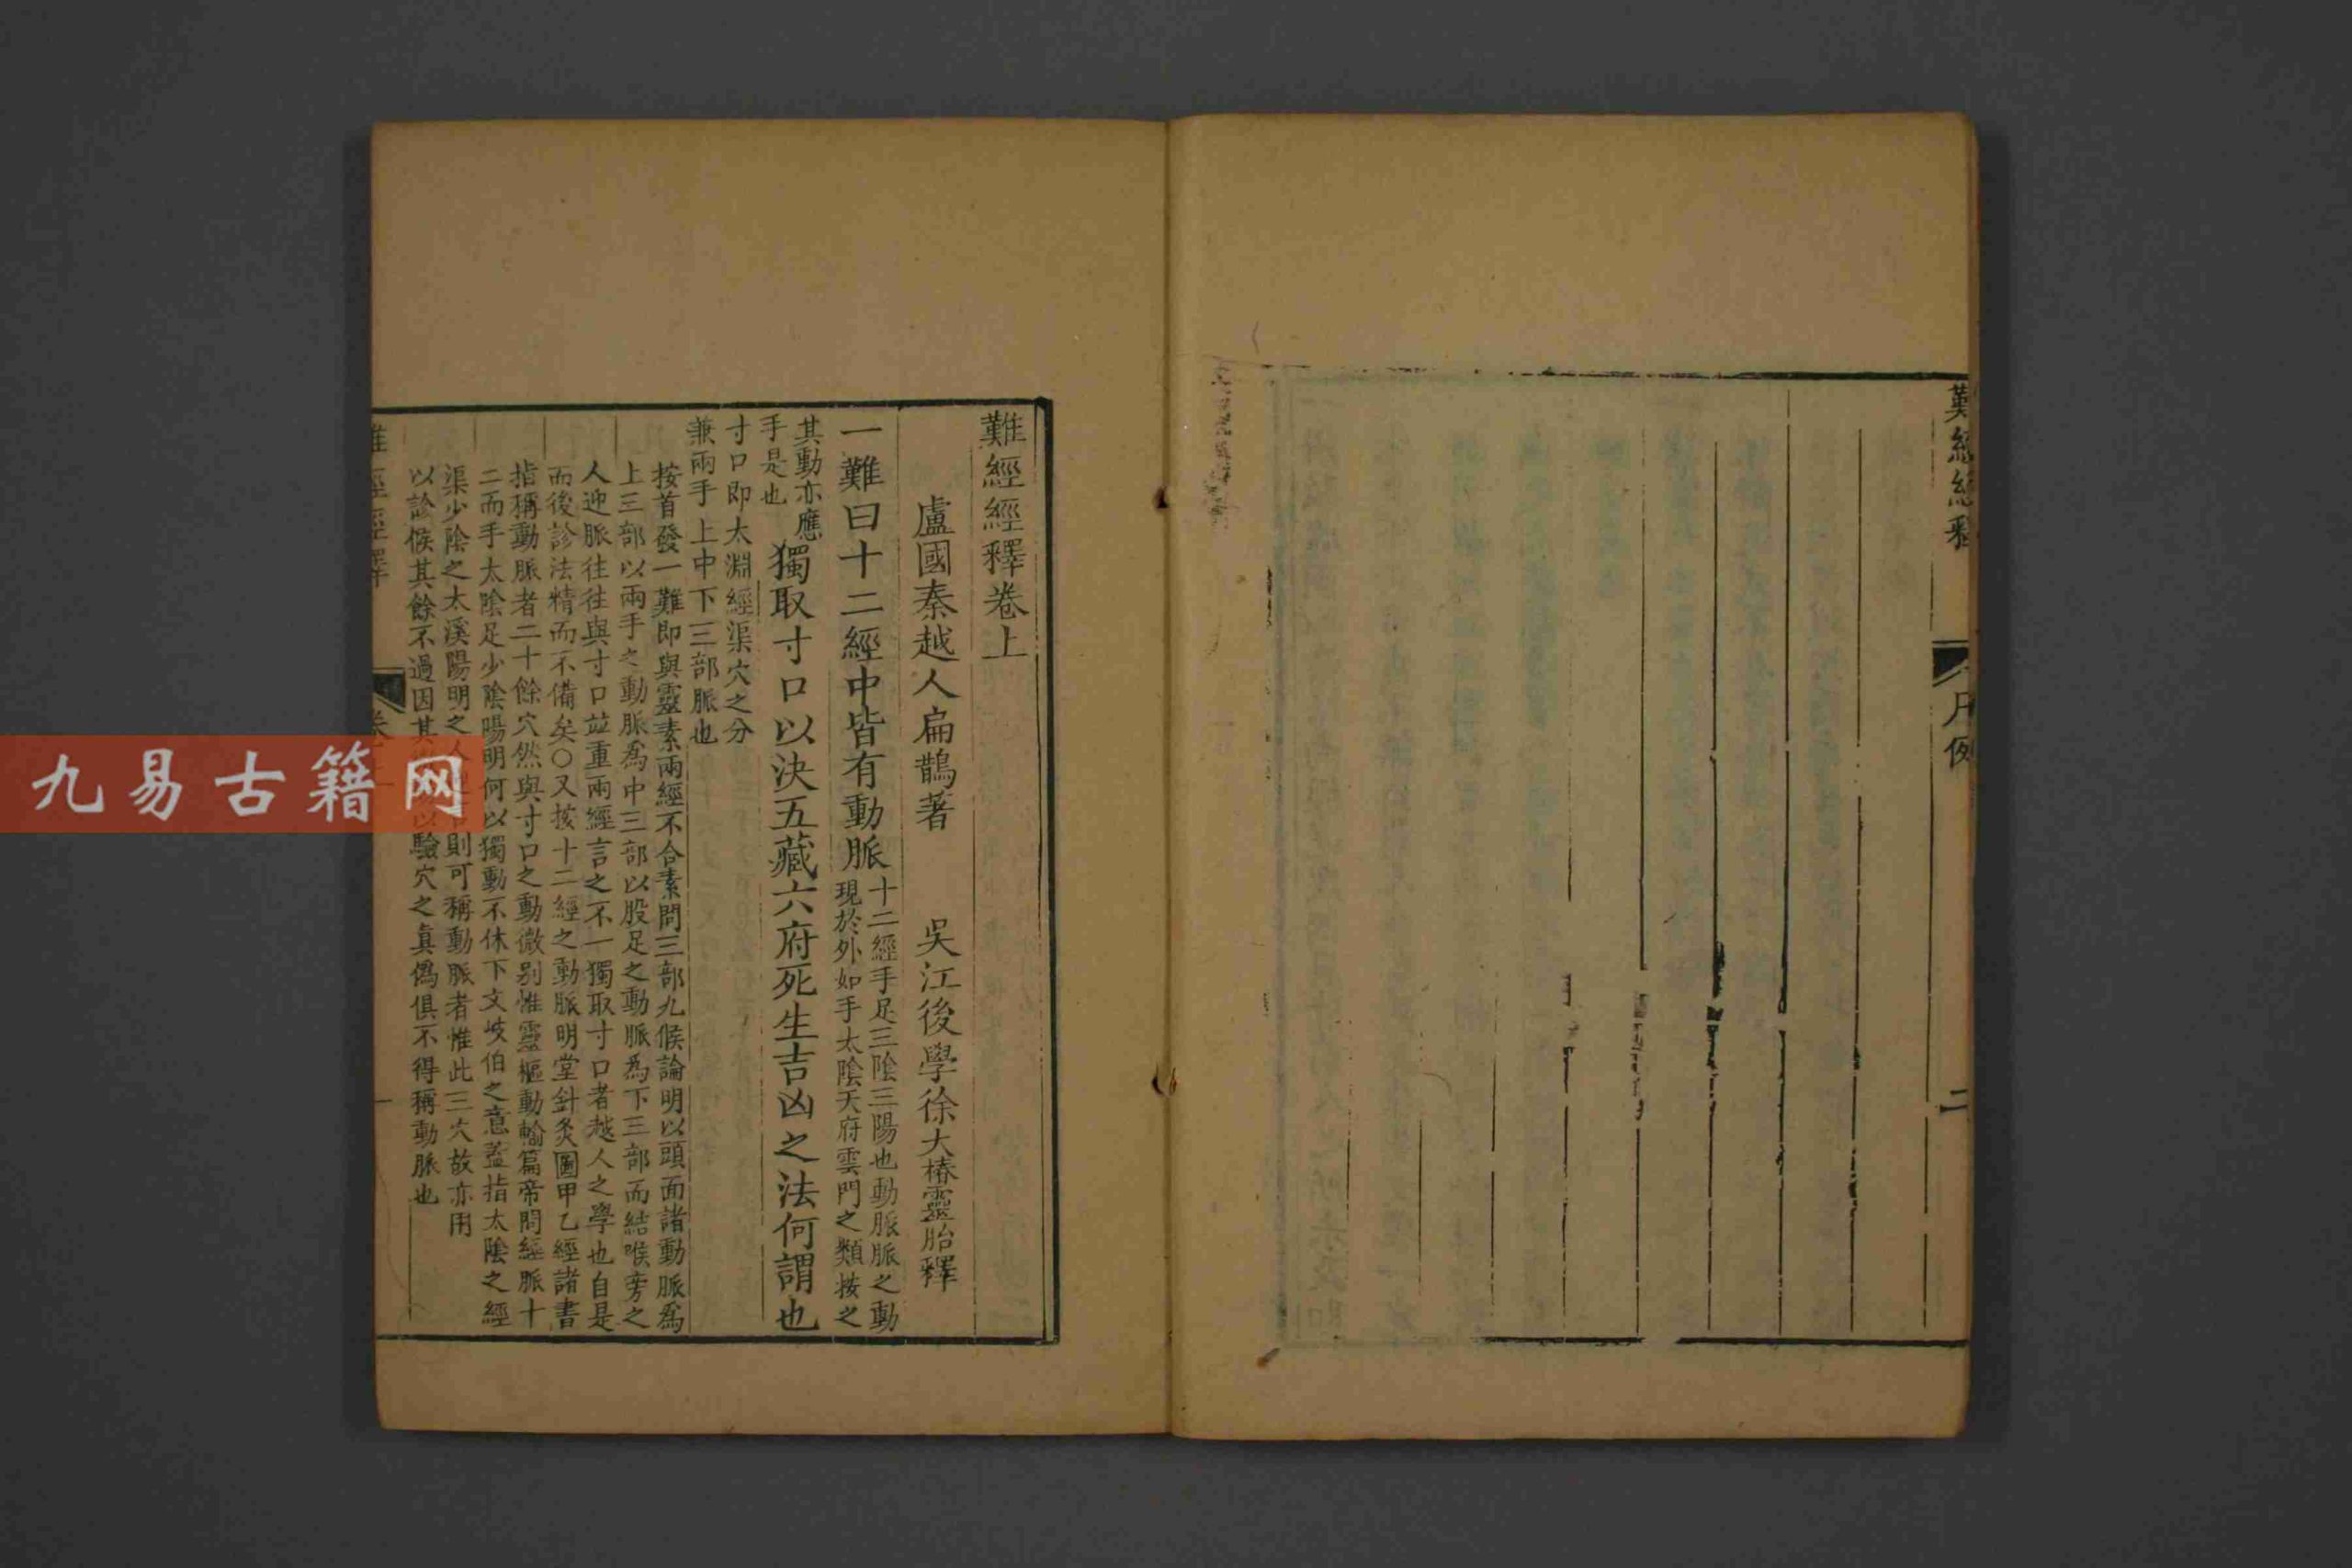 難經經釋
凡例
二
難經經釋卷上
盧國秦越人扁鵲著　吳江後學徐大椿靈胎釋
一難曰十二經中皆有動脈十二經手足三陰三陽也動脈脈之動
現於外如手太陰天府雲門之類按之
其動亦應
手是也
獨取寸口以決五藏六府死生吉凶之法何謂也
寸口即太淵經渠穴之分
兼兩手上中下三部脈也
按首發一難即與靈素兩經不合素問三部九候論明以頭面諸動脈爲
上三部以兩手之動脈爲中三部以股足之動脈爲下三部而結喉旁之
人迎脈往往與寸口竝重兩經言之不一獨取寸口者越人之學也自是
而後診法精而不備矣○又按十二經之動脈明堂針灸圖甲乙經諸書
指稱動脈者二十餘穴然與寸口之動微别惟靈樞動輸篇帝問經脈十
二而手太陰足少陰陽明何以獨動不休下文岐伯之意蓋指太陰之經
渠少陰之太溪陽明之人則可稱動脈者惟此三穴故亦用
以診候其餘不過因其以驗穴之眞僞俱不得稱動脈也
難經經釋
九易古籍网